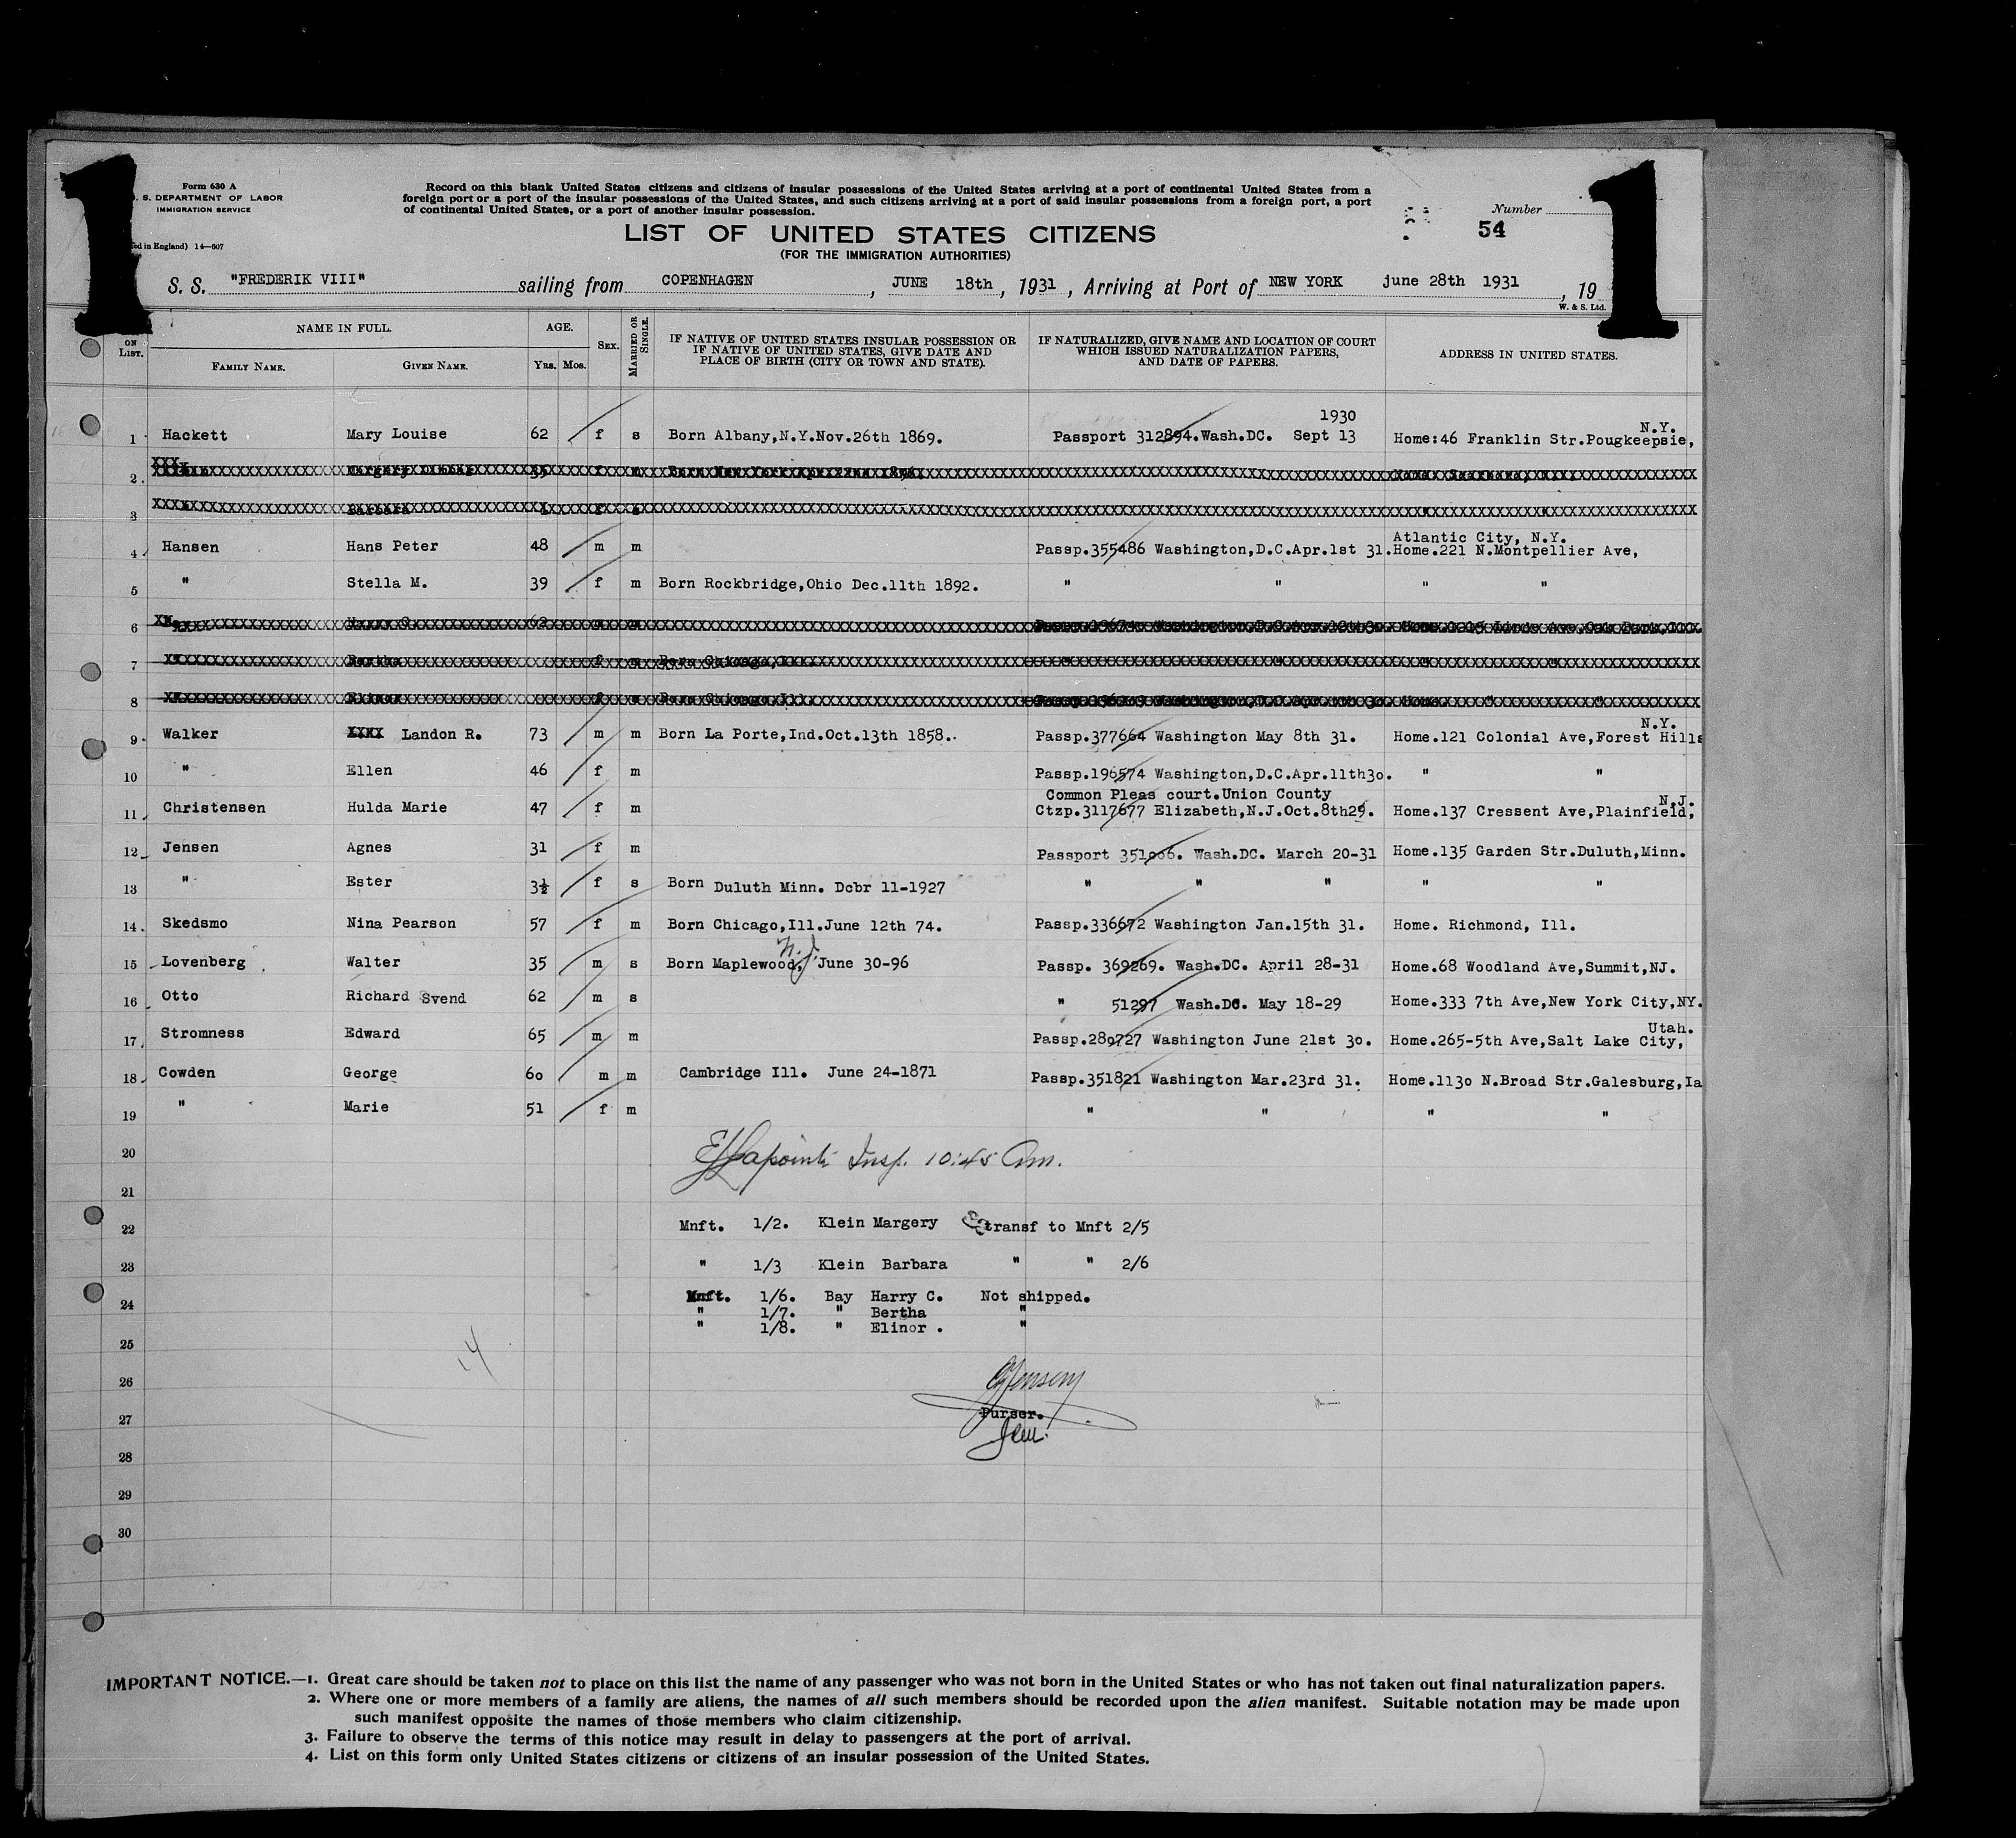 1 1
Form 630 A
U. S. DEPARTMENT OF LABOR
IMMIGRATION SERVICE
ed in England) 14—607
Record on this blank United States citizens and citizens of insular possessions of the United States arriving at a port of continental United States from a
foreign port or a port of the insular possessions of the United States, and such citizens arriving at a port of said insular possessions from a foreign port, a port
of continental United States, or a port of another insular possession.
Number
54
LIST OF UNITED STATES CITIZENS
(FOR THE IMMIGRATION AUTHORITIES)
S. S. "FREDERIK VIII" sailing from COPENHAGEN, JUNE 18th, 1931, Arriving at Port of NEW YORK june 28th 1931, 19
W. & S. Ltd.
ON LIST. NAME IN FULL. FAMILY NAME. GIVEN NAME. AGE. Yrs. Mos. SEX. MARRIED OR SINGLE. IF NATIVE OF UNITED STATES INSULAR POSSESSION OR IF NATIVE OF UNITED STATES, GIVE DATE AND PLACE OF BIRTH (CITY OR TOWN AND STATE). IF NATURALIZED, GIVE NAME AND LOCATION OF COURT WHICH ISSUED NATURALIZATION PAPERS, AND DATE OF PAPERS. ADDRESS IN UNITED STATES.
1930 N.Y.
1 Hackett Mary Louise 62 f s Born Albany,N.Y.Nov.26th 1869. Passport 312894.Wash.DC. Sept 13 Home:46 Franklin Str.Pougkeepsie,
2 35 f m Born New York
3 Barbara f s
Atlantic City, N.Y.
4 Hansen Hans Peter 48 m m Passp.355486 Washington,D.C.Apr.1st 31. Home.221 N.Montpellier Ave,
5 " Stella M. 39 f m Born Rockbridge,Ohio Dec.11th 1892. " " " "
6 62 m m
7 Bertha f m Born Chicago,Ill.
8 Elinor f s Born Chicago Ill.
N.Y.
9 Walker XXXX Landon R. 73 m m Born La Porte,Ind.Oct.13th 1858. Passp.377664 Washington May 8th 31. Home.121 Colonial Ave,Forest Hills
10 " Ellen 46 f m Passp.196574 Washington,D.C.Apr.11th30. " "
Common Pleas court.Union County N.J.
11 Christensen Hulda Marie 47 f m Ctzp.3117677 Elizabeth,N.J.Oct.8th29. Home.137 Cressent Ave,Plainfield,
12 Jensen Agnes 31 f m Passport 351006. Wash.DC. March 20-31 Home.135 Garden Str.Duluth,Minn.
13 " Ester 3½ f s Born Duluth Minn. Dcbr 11-1927 " " " " "
14 Skedsmo Nina Pearson 57 f m Born Chicago,Ill.June 12th 74. Passp.336672 Washington Jan.15th 31. Home. Richmond, Ill.
N.J.
15 Lovenberg Walter 35 m s Born Maplewood, June 30-96 Passp. 369269. Wash.DC. April 28-31 Home.68 Woodland Ave,Summit,NJ.
16 Otto Richard Svend 62 m s " 51297 Wash.DC. May 18-29 Home.333 7th Ave,New York City,NY.
Utah.
17 Stromness Edward 65 m m Passp.280727 Washington June 21st 30. Home.265-5th Ave,Salt Lake City,
18 Cowden George 60 m m Cambridge Ill. June 24-1871 Passp.351821 Washington Mar.23rd 31. Home.1130 N.Broad Str.Galesburg,Ia
19 " Marie 51 f m " " " "
20 Insp. 10:45 Am.
21
22 Mnft. 1/2. Klein Margery transf to Mnft 2/5
23 " 1/3 Klein Barbara " " 2/6
24 Mnft. 1/6. Bay Harry C. Not shipped.
" 1/7. " Bertha "
" 1/8. " Elinor . "
25
14
26
Purser.
27
28
29
30
IMPORTANT NOTICE.—1. Great care should be taken not to place on this list the name of any passenger who was not born in the United States or who has not taken out final naturalization papers.
2. Where one or more members of a family are aliens, the names of all such members should be recorded upon the alien manifest. Suitable notation may be made upon
such manifest opposite the names of those members who claim citizenship.
3. Failure to observe the terms of this notice may result in delay to passengers at the port of arrival.
4. List on this form only United States citizens or citizens of an insular possession of the United States.